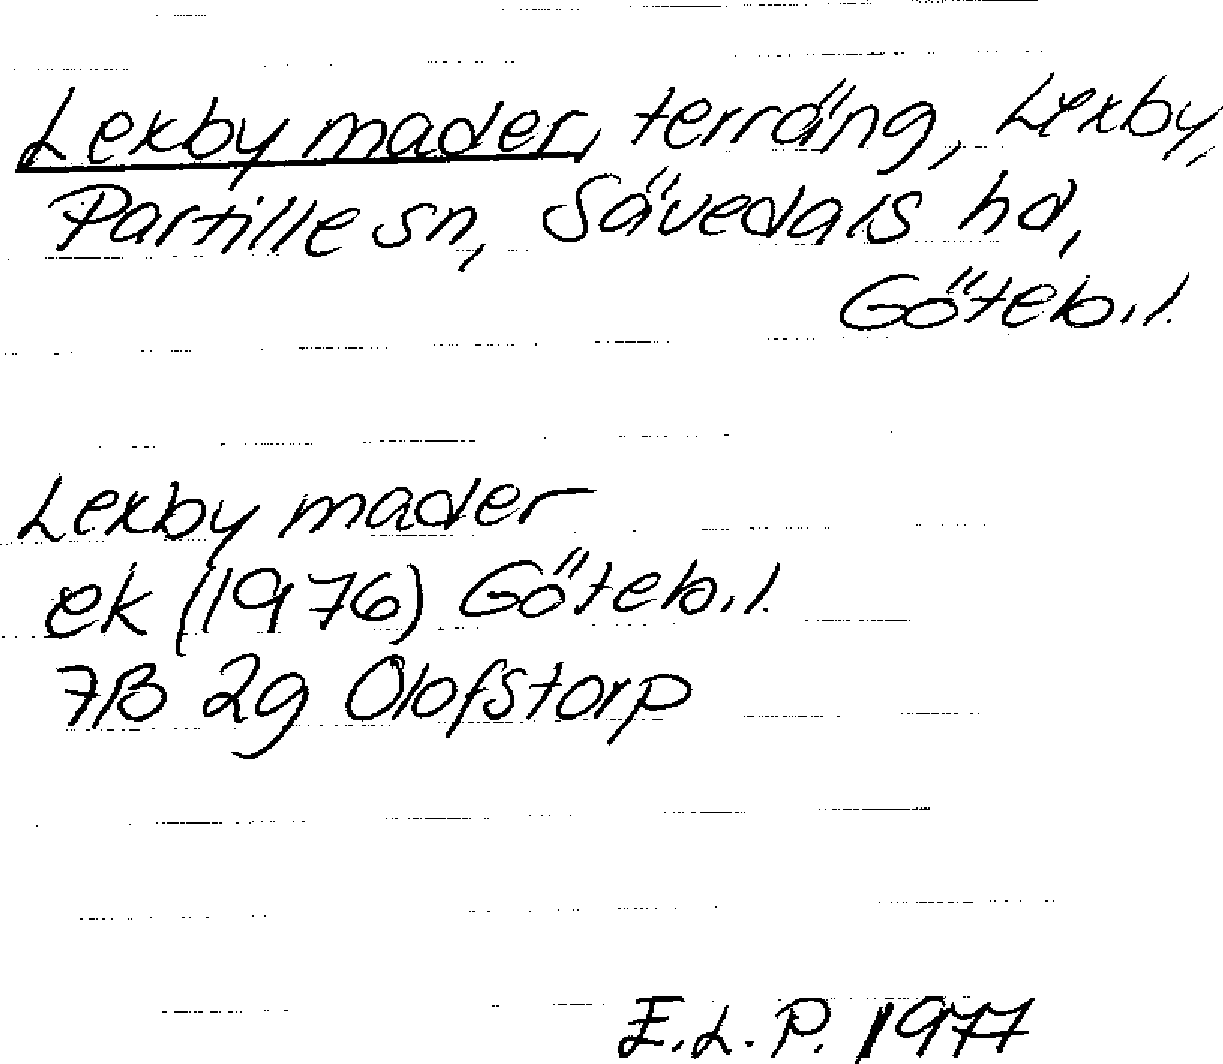 Lexby mader, terräng, Lexby,
Partille sn, Sävedals hd,
Göteb. l.
Lexby mader
ek (1976) Göteb. l.
7B 2g Olofstorp
E.L.P. 1977